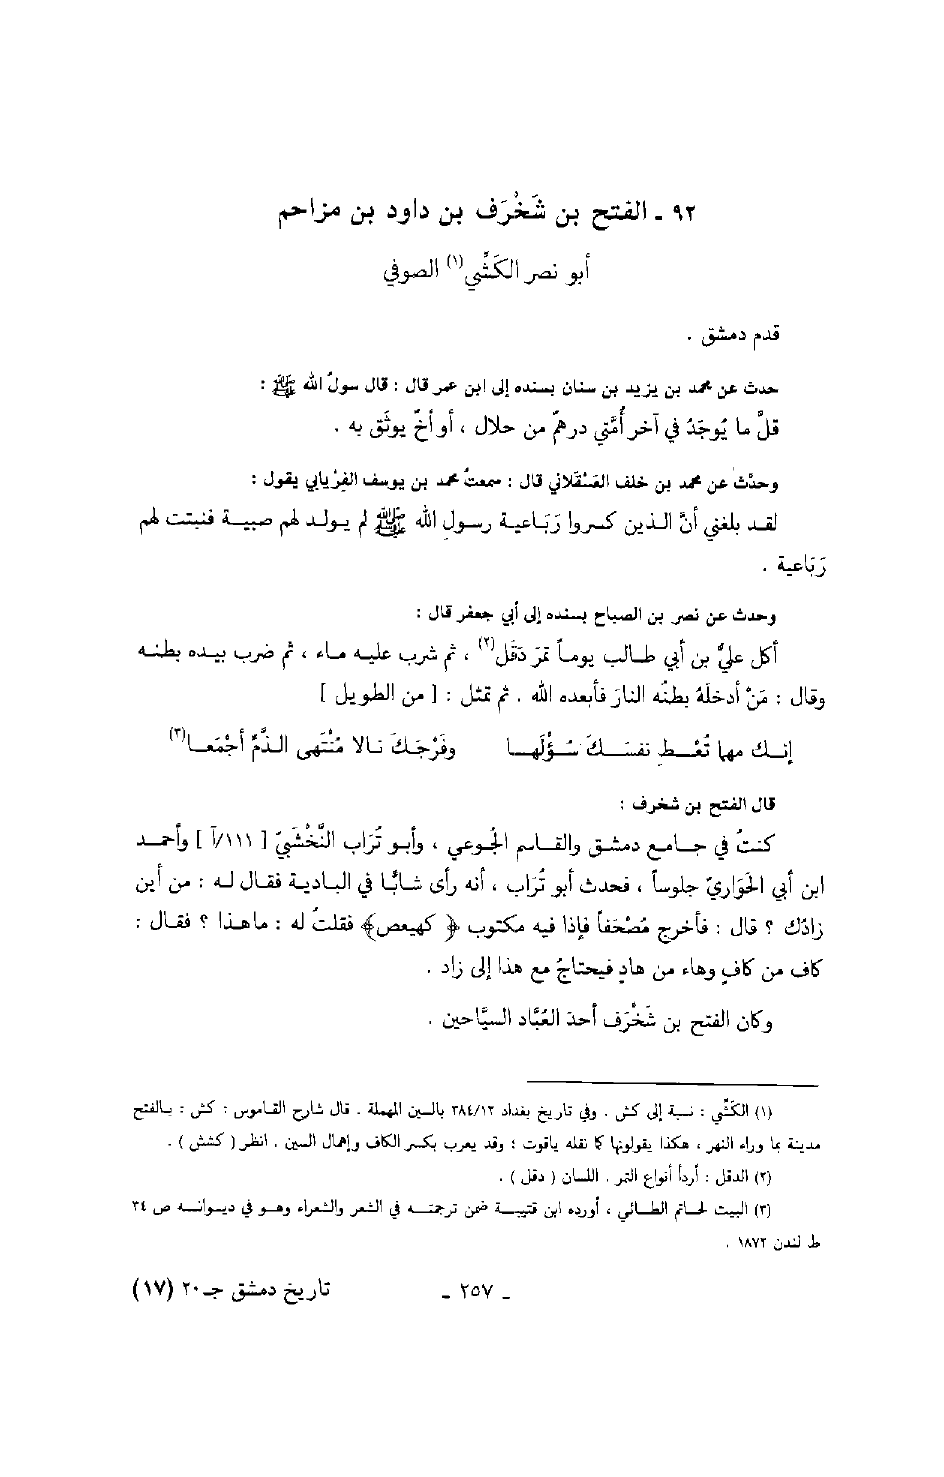 ٩٢ ـ الفتح بن شَخْرَف بن داود بن مزاحم
أبو نصر الكَشِّي(١) الصوفي
قدم دمشق .
حدث عن محمد بن يزيد بن سنان بسنده إلى ابن عمر قال : قال سولُ الله ﷺ :
قلَّ ما يُوجَدُ في آخر أُمَّتي درهمٌ من حلال ، أو أخٌ يوثَق به .
وحدَّث عن محمد بن خلف العَسْقَلاني قال : سمعتُ محمد بن يوسف الفِرْيابي يقول :
لقـد بلغني أنَّ الـذين كسروا رَبَاعيـة رسـولِ الله ﷺ لم يـولـد لهم صبيـة فنبتت لهم
رَبَاعية .
وحدث عن نصر بن الصباح بسنده إلى أبي جعفر قال :
أكل عليُّ بن أبي طـالب يومـاً تمرَ دَقَل(٢) ، ثم شرب عليـه مـاء ، ثم ضرب بيـده بطنـه
وقال : مَنْ أدخلَهُ بطنُه النارَ فأبعده الله . ثم تمثل : [ من الطويل ]
إنـك مهما تُعْـطِ نفسَـكَ سُـؤْلَهـا وفَرْجَـكَ نـالا مُنْتَهى الـذَّمِّ أَجْمَعـا(٣)
قال الفتح بن شخرف :
كنتُ في جـامع دمشق والقـاسم الجُوعي ، وأبـو تُرَاب النَّخْشَبيّ [ ١١١/آ ] وأحمـد
ابن أبي الحَوَاريّ جلوساً ، فحدث أبو تُراب ، أنه رأى شابًّا في البـاديـة فقـال لـه : من أين
زادُك ؟ قال : فأخرج مُصْحَفاً فإذا فيه مكتوب ﴿ كهيعص﴾ فقلتُ له : ماهذا ؟ فقـال :
كاف من كافٍ وهاء من هادٍ فيحتاجُ مع هذا إلى زاد .
وكان الفتح بن شَخْرَف أحدَ العُبَّاد السيَّاحين .
(١) الكَشِّي : نسبة إلى كش . وفي تاريخ بغداد ٣٨٤/١٢ بالسين المهملة . قال شارح القاموس : كش : بـالفتح
مدينة بما وراء النهر ، هكذا يقولونها كما نقله ياقوت ؛ وقد يعرب بكسر الكاف وإهمال السين . انظر ( كشش ) .
(٢) الدقل : أردأ أنواع التمر . اللسان ( دقل ) .
(٣) البيت لحـاتم الطـائي ، أورده ابن قتيبـة ضمن ترجمتـه في الشعر والشعراء وهـو في ديـوانـه ص ٣٤
ط لندن ١٨٧٢ .
ـ ٢٥٧ ـ تاريخ دمشق جـ٢٠ (١٧)